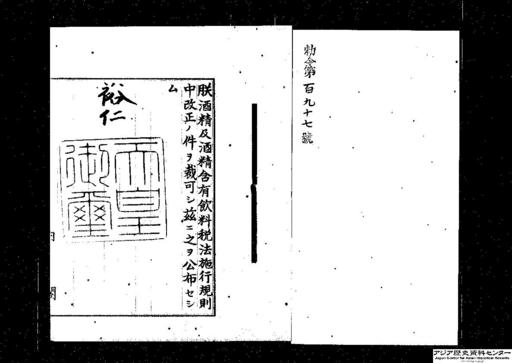 勅令第百九十七號
朕酒精及酒精含有飲料税法施行規則
中改正ノ件ヲ裁可シ茲ニ之ヲ公布セシ
ム
裕仁
天皇
御璽
内閣
アジア歴史資料センター
Japan Center for Asian Historical Records